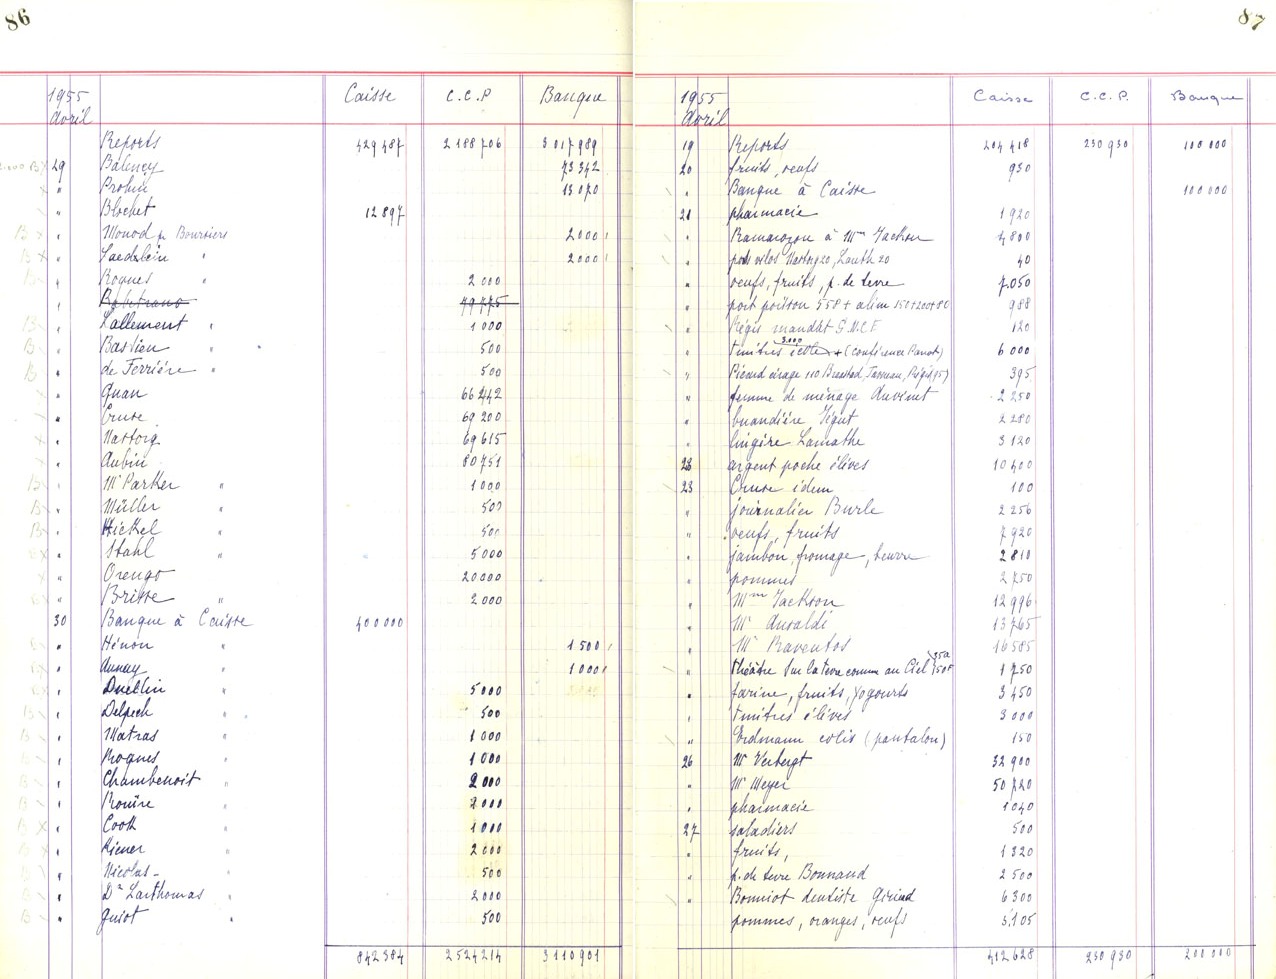 86
1955 Avril Caisse C.C.P Banque
Reports 429 487 2 188 706 3 017 989
29 Balency 73 342
" Probin 13 070
" Blochet 12 897
" Monod pr Boursiers 2 000
" Laederlein " 2 000
" Rognes 2 000
" 79 775
" Lallement " 1 000
" Bastien " 500
" de Ferrière " 500
" Guan 66 442
" Cruse 69 200
" Hartorg 69 615
" Aubin 80 751
" Mr Parker " 1 000
" Müller " 500
" Hickel " 500
" Stahl " 5 000
" Orengo 20 000
" Brisse " 2 000
30 Banque à Caisse 400 000
" Hénon " 1 500
" Aunay " 1 000
" Duellin " 5 000
" Delpech " 500
" Matras " 1 000
" Rognes " 1 000
" Chambenoit " 2 000
" Rouire " 2 000
" Cook " 1 000
" Kiener " 2 000
" Nicolas " 500
" Dr Larthomas " 2 000
" Guiot " 500
842 384 2 524 214 3 110 901
87
1955 Avril Caisse C.C.P. Banque
19 Reports 204 418 230 930 100 000
20 fruits, oeufs 930
" Banque à Caisse 100 000
21 pharmacie 1 920
" Ramarozon à Mme Jackson 4 800
" port vélos Hartorg 20, Lauth 20 40
" oeufs, fruits, p. de terre 7 050
" port poisson 558 + alim 150+200+80 988
" Régis mandat G.M.C.F. 120
" timbres école 3.000 + (conférence Panot) 6 000
" Picard cirage 110 Régis 95) 395
" femme de ménage Auvinet 2 250
" buandière Tégut 2 280
" lingère Lamathe 3 120
23 argent poche élèves 10 400
23 Cruse idem 100
" journalier Burle 2 256
" oeufs, fruits 7 920
" jambon, fromage, beurre 2 810
" pommes 2 750
" Mme Jackson 12 996
" Mr Ansaldi 13 765
" Mr Raventos 16 585
" théâtre Sur la terre comme au Ciel 35 à 50F 1 750
" farine, fruits, yogourts 3 450
" timbres élèves 3 000
" Erdmann colis (pantalon) 150
26 Mr Verbergt 32 900
" Mr Meyer 50 720
" pharmacie 1 040
27 saladiers 500
" fruits, 1 320
" p. de terre Bonnand 2 500
" Bonniot dentiste Giriad 6 300
pommes, oranges, oeufs 5 105
412 628 230 930 200 000